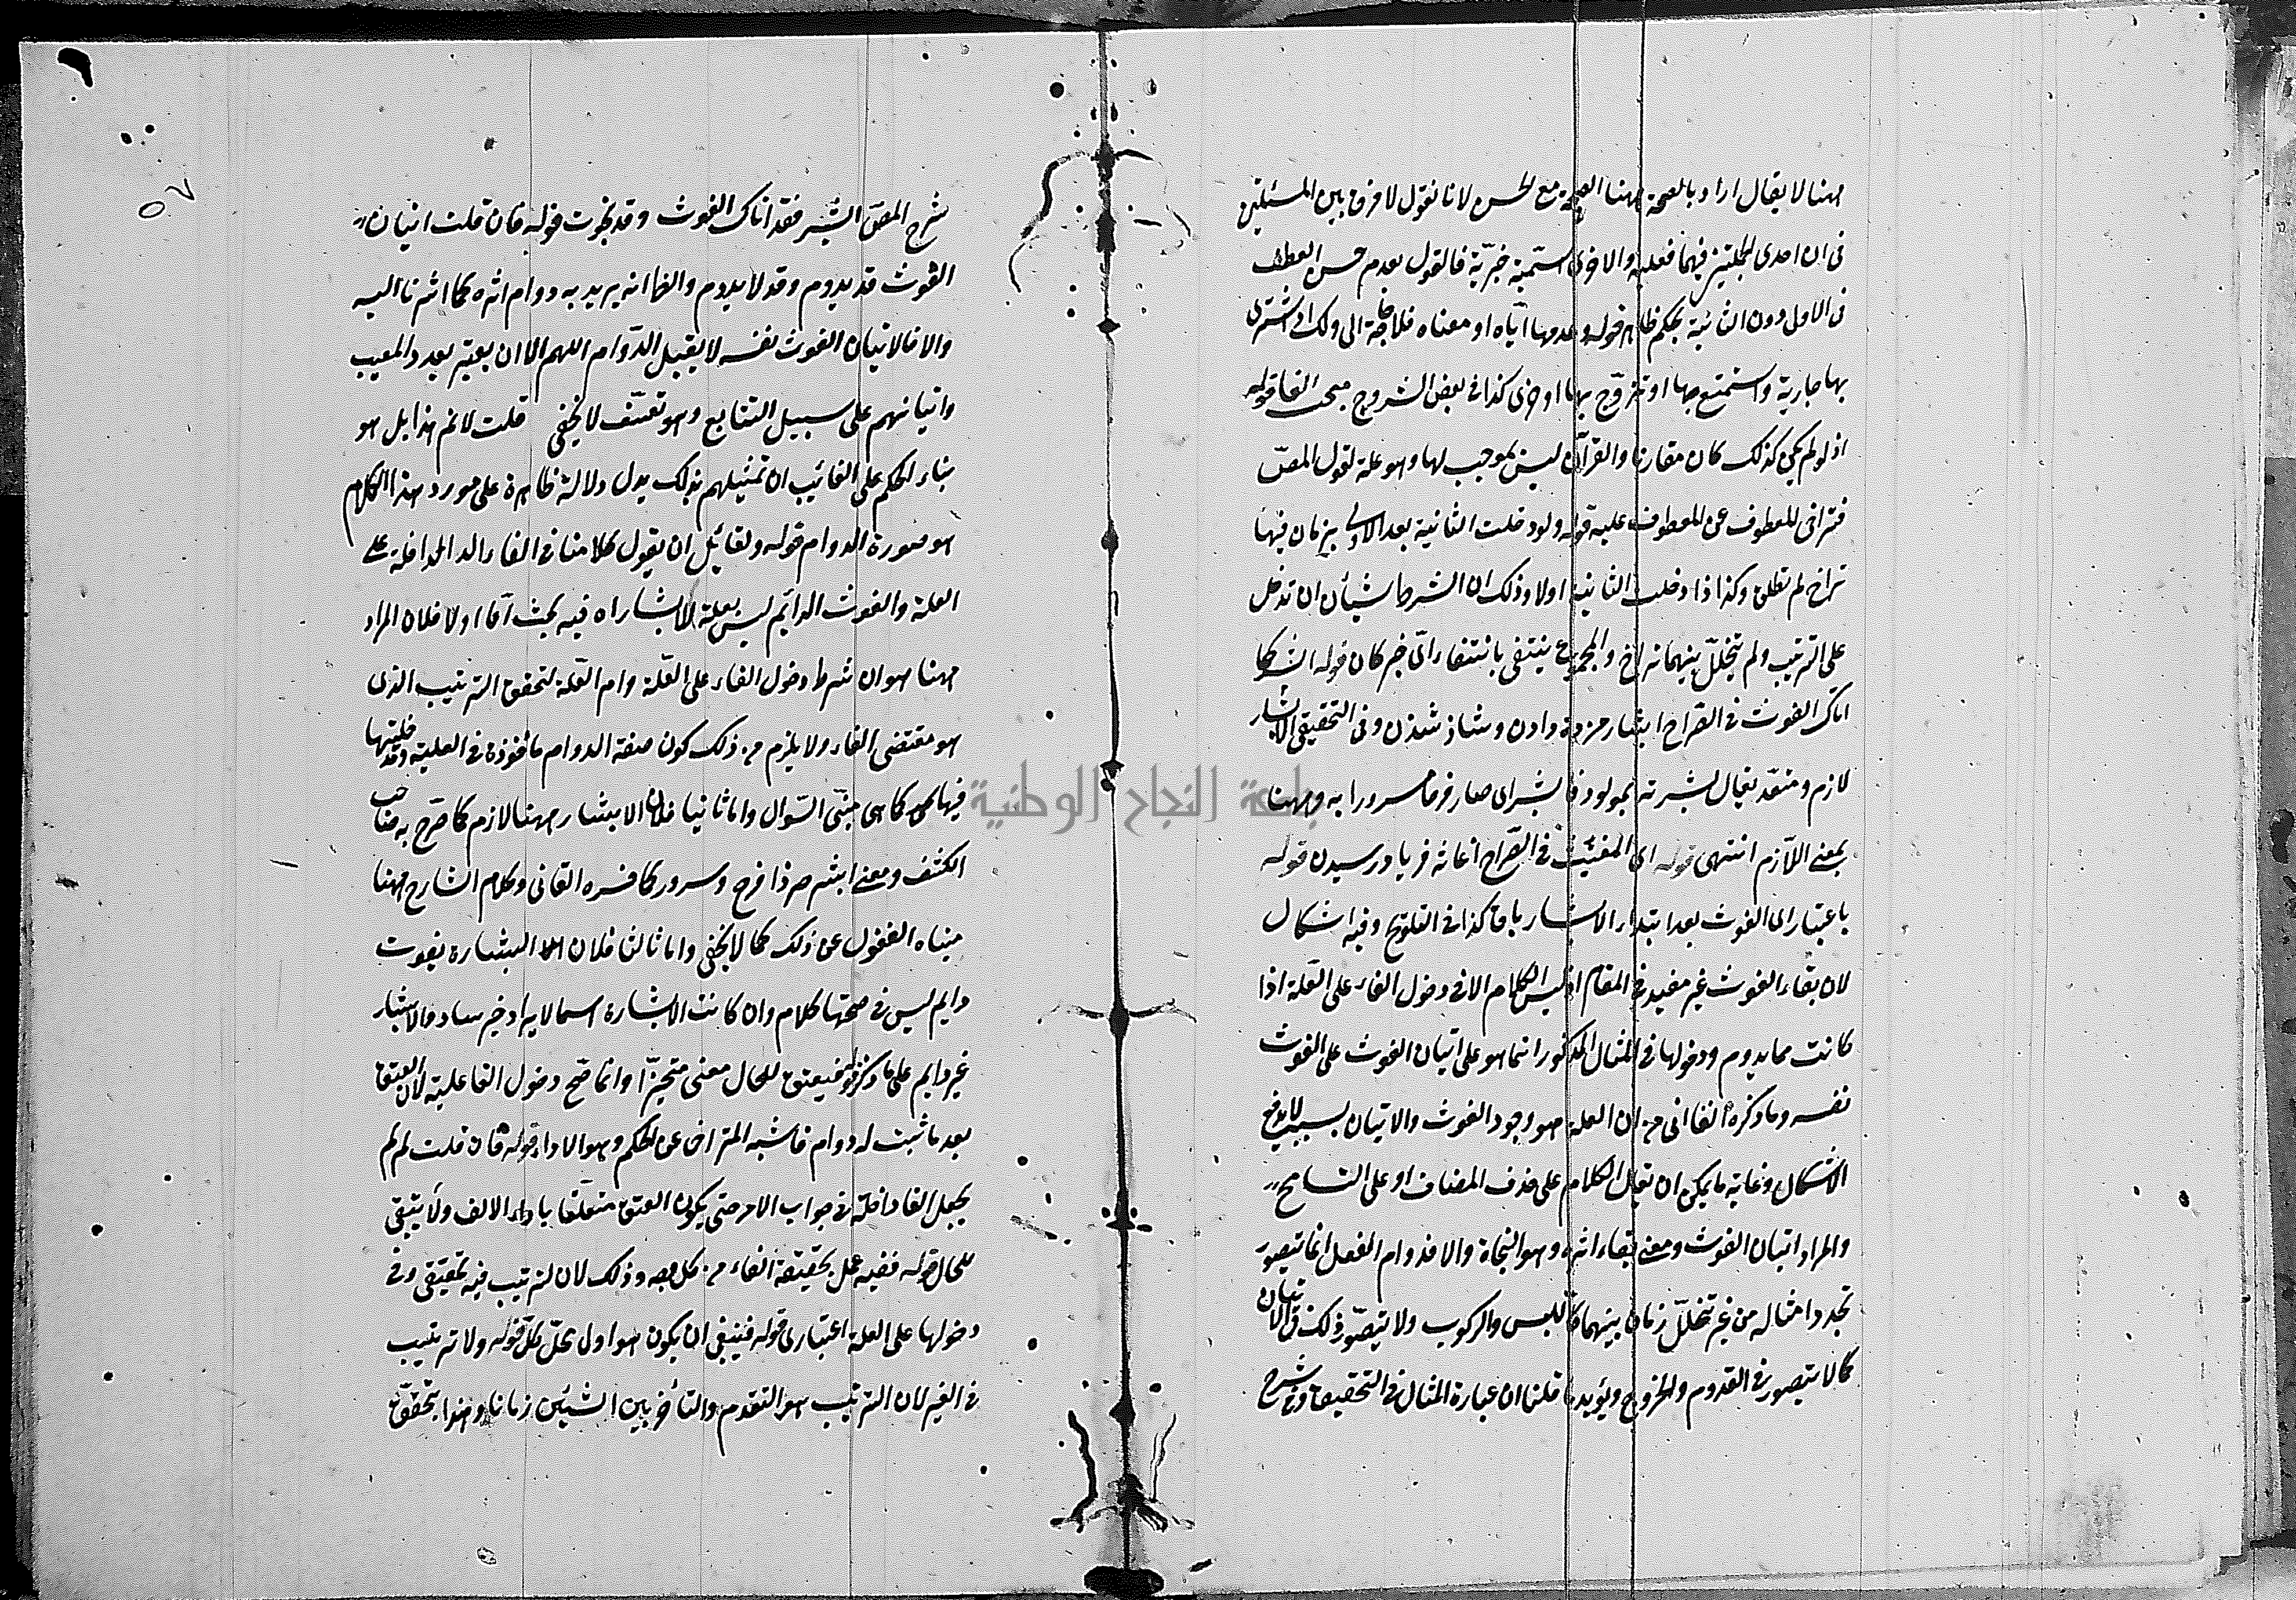 ههنا لا يقال اراد بالصحة ههنا الصحة مع الحسن لانا نقول لا فرق بين المسئلتين
فى ان احدى الجملتين فيهما فعلية والاخرى اسمية خبرية فالقول بعدم حسن العطف
فى الاولى دون الثانية تحكم ظاهر قوله وعدمها اياه او معناه فلا حاجة الى ذلك اى اشترى
بها جارية واستمتع بها او تزوج بها اخرى كذا فى بعض الشروح مبحث الفا قوله
اذ لو لم يكن كذلك كان مقارنا والقرآن ليس بموجب لها وهو علة لقول المص
فتراخى المعطوف عن المعطوف عليه قوله ولو دخلت الثانية بعد الاولى بزمان فيها
تراخ لم تطلق وكذا اذا دخلت الثانية اولا وذلك ان الشرط شيئان ان تدخل
على الترتيب ولم يتخلل بينهما تراخ والمجموع ينتفى بانتفاء اى جزء كان قوله ابشر كما
اتاك الغوث فى الصراح ابشار مژده دادن وشاذ شدن وفى التحقيق الابشار
لازم ومتعد يقال بشرته بمولود فابشر اى صار فرحا مسرورا به وههنا
بمعنى اللازم انتهى قوله اى المغيث فى الصراح اغاثه فرياد رسيدن قوله
باعتبار اى الغوث بعد ابتداء الابشار باق كذا فى التلويح وفيه اشكال
لان بقاء الغوث غير مفيد فى المقام اذ ليس الكلام الا فى دخول الفاء على العلة اذا
كانت مما يدوم ودخولها فى المثال المذكور انما هو على اتيان الغوث على الغوث
نفسه وما ذكره الفاانى من ان العلة هو وجود الغوث والاتيان بسببه لا يدفع
الاشكال وغاية ما يمكن ان يقال الكلام على حذف المضاف او على التسامح
والمراد اتيان الغوث ومعنى بقاء اثره وهو النجاة والا فدوام الفعل انما يتصور
تجدد امثاله من غير تخلل زمان بينهما كاللبس والركوب ولا يتصور ذلك فى الاتيان
كما لا يتصور فى القدوم والخروج ويؤيد ما قلنا ان عبارة المثال فى التحقيق وفى شرح
شرح المص ابشر فقد اتاك الغوث وقد نجوت قوله فان قلت اتيان
الغوث قد يدوم وقد لا يدوم والظ انه يريد به دوام اثره كما اشرنا اليه
والا فالاتيان الغوث نفسه لا يقبل الدوام اللهم الا ان يعتبر بعدد المعيب
واتيانهم على سبيل التتابع وهو تعسف لا يخفى قلت لا نم هذا بل هو
بناء الحكم على الغائب ان تمثيلهم بذلك يدل دلالة ظاهرة على مورد هذا الكلام
هو صورة الدوام قوله ولقائل ان يقول كلامنا فى الفاء الداخلة على
العلة والغوث الدائم ليس بعلة للابشار اه فيه بحث اما اولا فلان المراد
ههنا هو ان شرط دخول الفاء على العلة دوام العلة لتحقق الترتيب الذى
هو مقتضى الفاء ولا يلزم من ذلك كون صفة الدوام مأخوذة فى العلية وقد
فيها كما هى مبنى السؤال واما ثانيا فلان الابشار ههنا لازم كما صرح به صاحب
الكشف ومعنى ابشر صر ذا فرح وسرور كما فسره القانى وكلام الشارح ههنا
مبناه الغفول عن ذلك كما لا يخفى واما ثالثا فلان البشارة بغوت
دايم ليس فى صحتها كلام وان كانت الابشارة اسما لايراد خبر ساد والابشار
غير دايم على ما ذكر قوله فيعتق للحال معنى متحيزا وانما صح دخول الفا علية لان العتق
بعد ما ثبت له دوام فاشبه المتراخى عن الحكم وهو الاداء قوله فان قلت لم لم
يجعل الفا داخلة فى جواب الامر حتى يكون العتق متعلقا باداء الالف ولا يبتقى
للحال قوله ففيه عمل بحقيقة الفاء من كل وجه وذلك لان الترتيب فيه تحقيقى وفى
دخولها على العلة اعتبارى قوله فينبغى ان يكون هو اولى محل بكل قوله ولا ترتيب
فى الغير لان الترتيب هو التقدم والتأخر بين الشيئين زمانا وهذا يتحقق
جامعة النجاح الوطنية